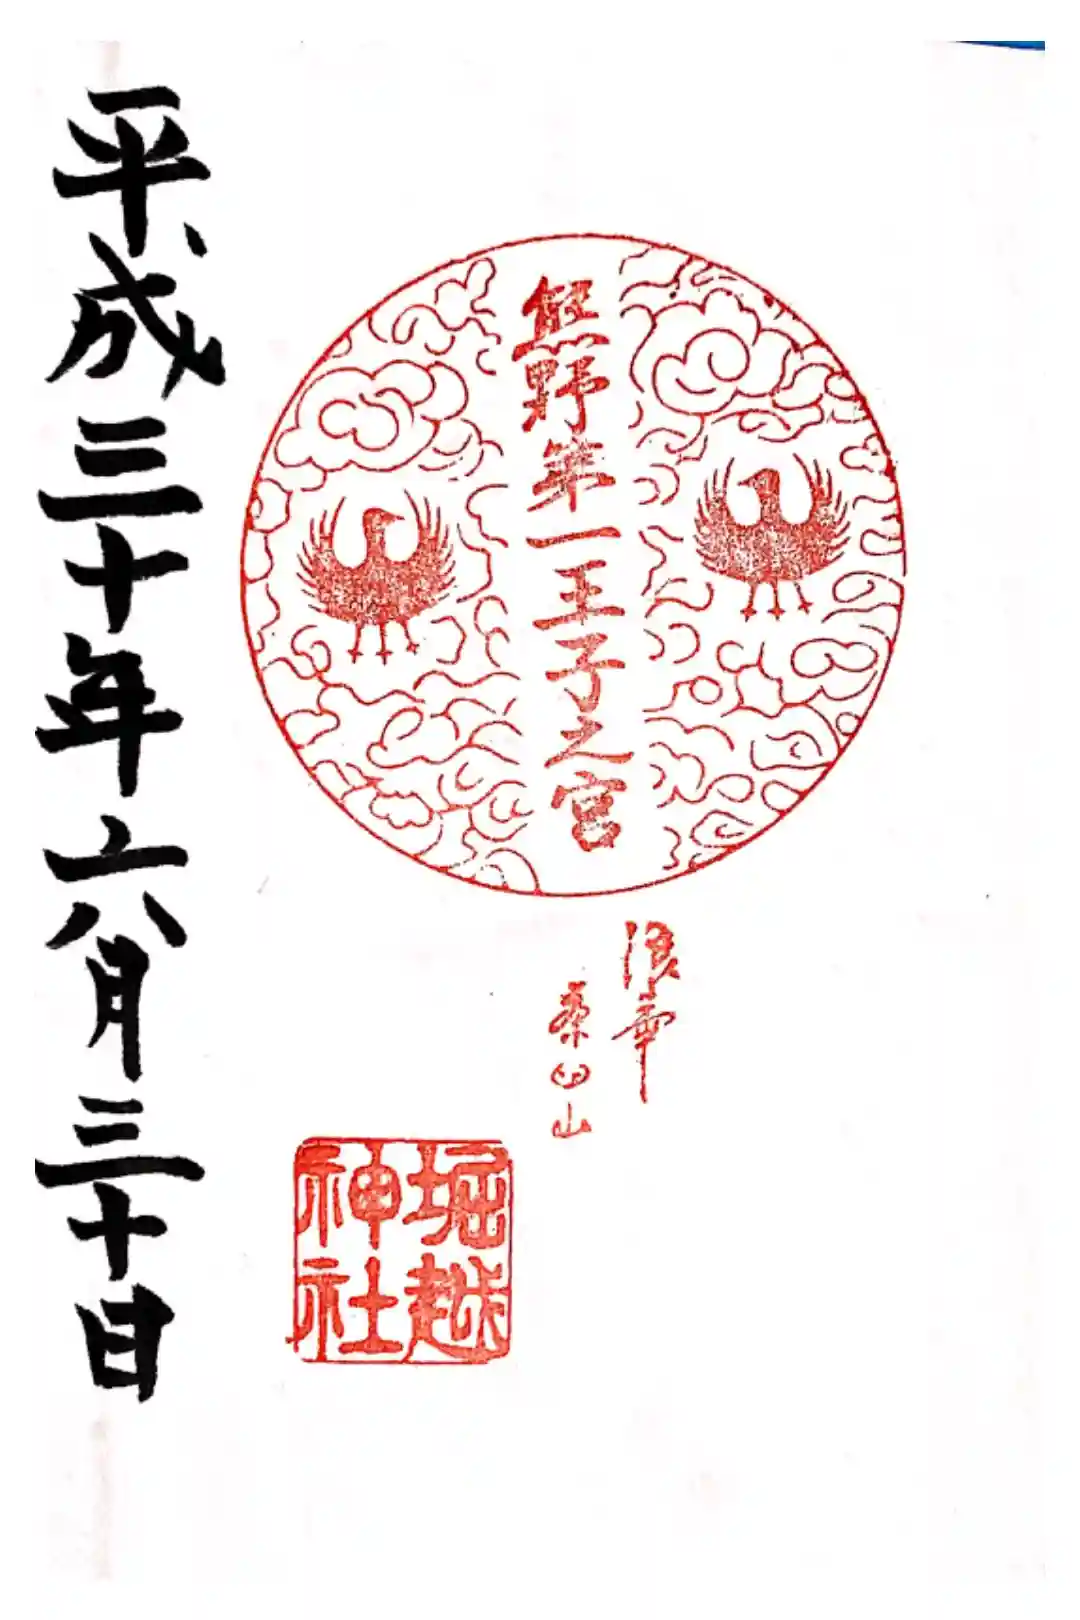 熊野第一王子之宮
浪華
茶臼山
堀越
神社
平成三十年六月三十日